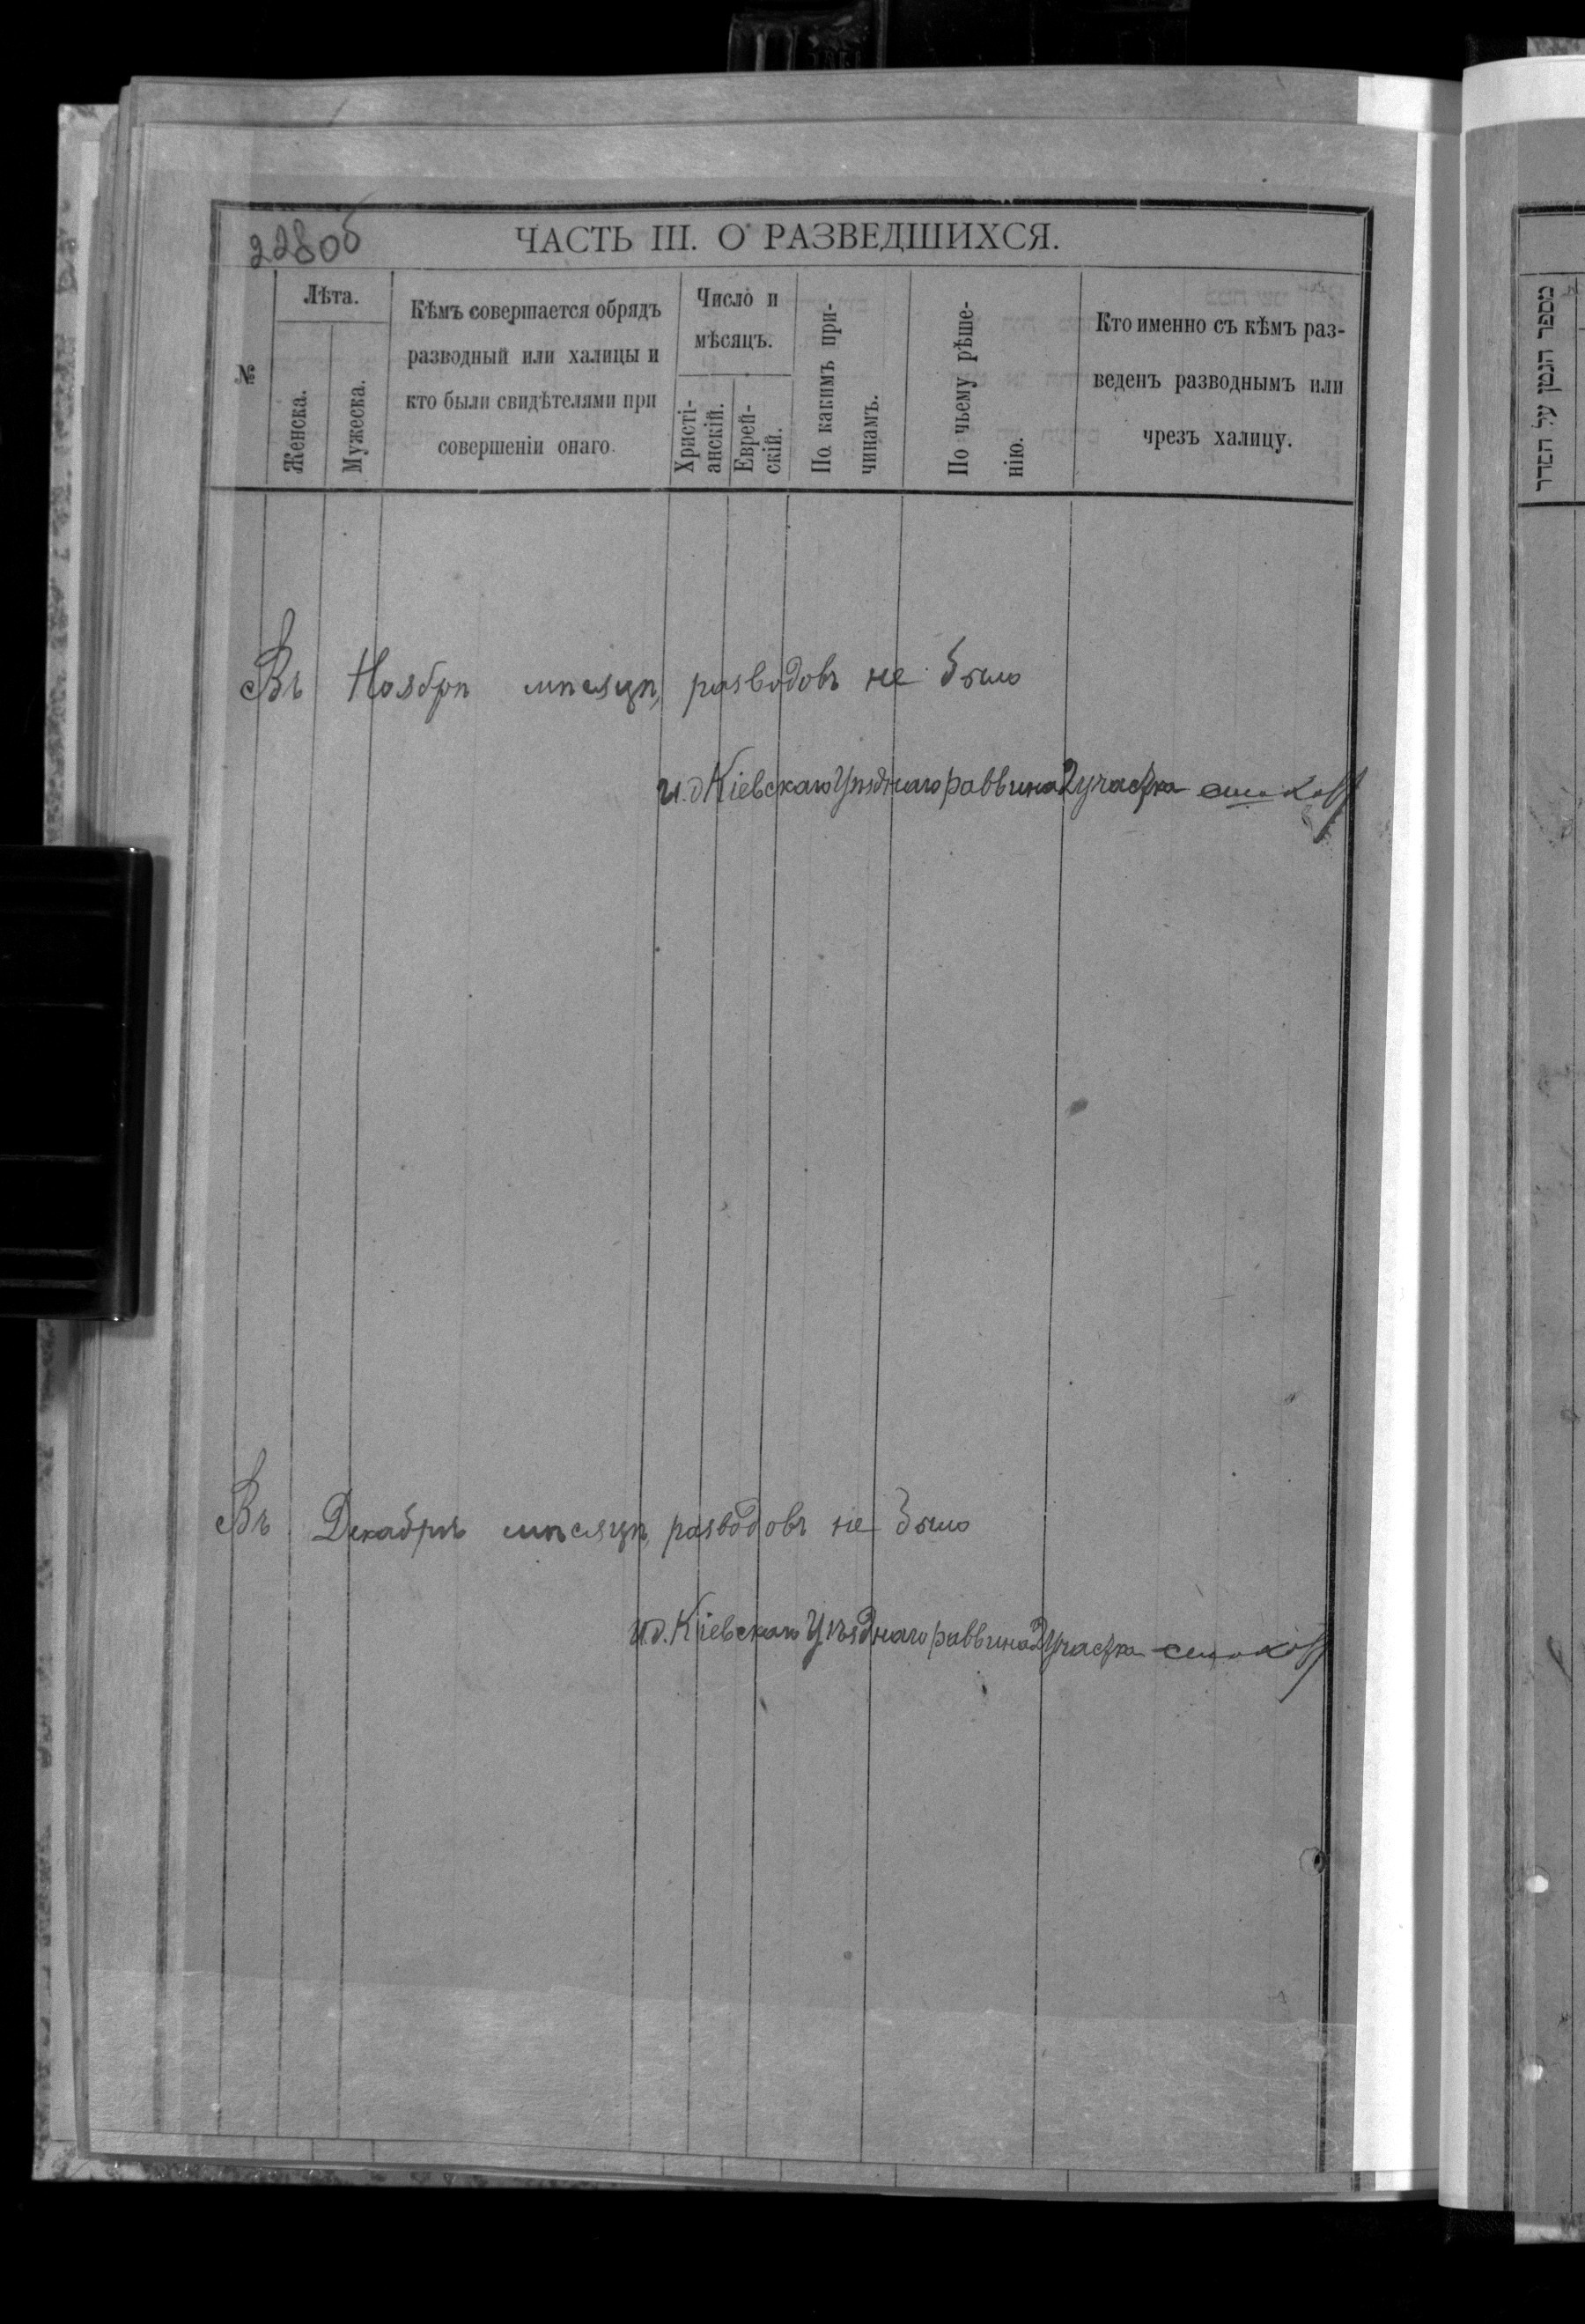 228об
ЧАСТЬ III. О РАЗВЕДШИХСЯ.
№
Лѣта.
Женска.
Мужеска.
Кѣмъ совершается обрядъ
разводный или халицы и
кто были свидѣтелями при
совершеніи онаго.
Число и
мѣсяцъ.
Христі-
анскій.
Еврей-
скій.
По какимъ при-
чинамъ.
По чьему рѣше-
нію.
Кто именно съ кѣмъ раз-
веденъ разводнымъ или
чрезъ халицу.
Въ Ноябрѣ мѣсяцѣ разводовъ не было
И.д Кіевскаго Уѣзднаго раввина 2 участка
Въ Декабрѣ мѣсяцѣ разводовъ не было
И.д. Кіевскаго Уѣзднаго раввина 2 Участка